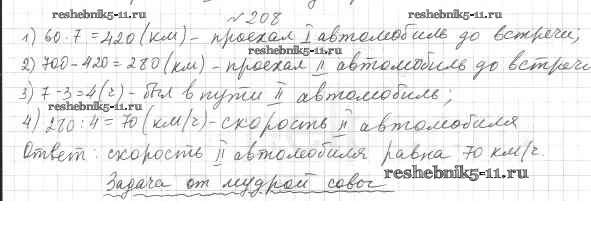 reshebnik5-11.ru № 208 reshebnik5-11.ru
1) 60·7=420(км) - проехал I автомобиль до встречи;
reshebnik5-11.ru
2) 700-420=280(км) - проехал II автомобиль до встречи
3) 7-3=4(ч) - был в пути II автомобиль;
reshebnik5-11.ru
4) 280:4=70(км/ч) - скорость II автомобиля
Ответ: скорость II автомобиля равна 70 км/ч.
reshebnik5-11.ru
Задача от мудрой совы